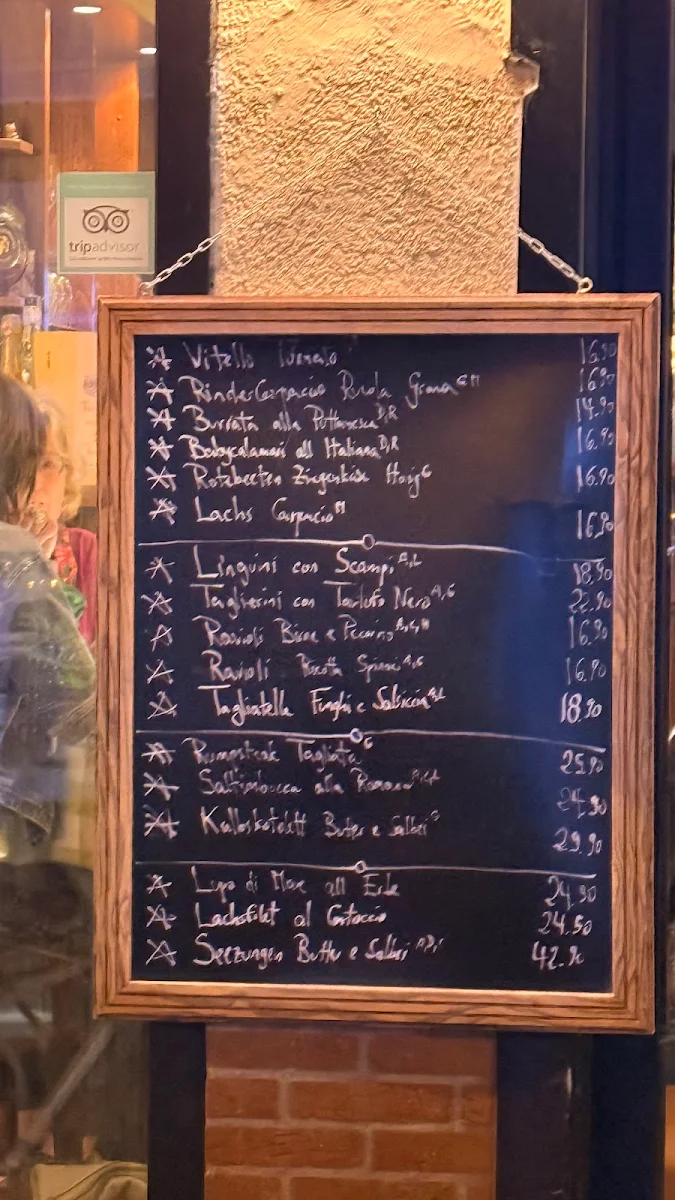 tripadvisor
Vitello Tonnato 16.90
Rinder Carpaccio Rucola Grana G M 16.90
Burrata alla Puttanesca D,R 14.90
Babycalamari all Italiana D,R 16.90
Rotebeeten Ziegenkäse Honig G 16.90
Lachs Carpaccio M 16.90
Linguini con Scampi A,L 18.90
Taglierini con Tartufo Nero A,G 22.90
Ravioli Birne e Pecorino 16.90
Ravioli Ricotta Spinaci A,G 16.90
Tagliatella Funghi e Salsiccia 18.90
Rumpsteak Tagliata G 25.90
Saltimbocca alla Romana 24.90
Kalbskotelett Butter e Salbei G 29.90
Lupo di Mare all Erbe 24.90
Lachsfilet al Cartoccio 24.50
Seezungen Butter e Salbei 42.90